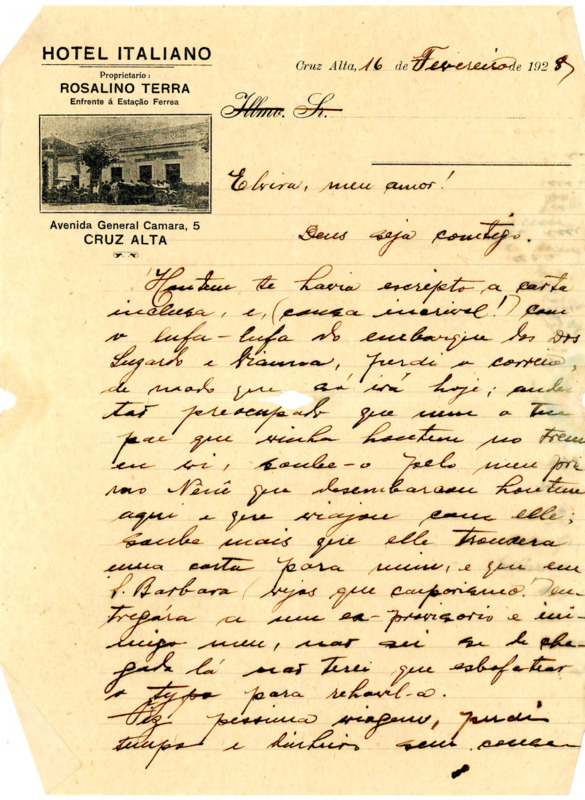 HOTEL ITALIANO
Proprietario:
ROSALINO TERRA
Enfrente á Estação Ferrea
Avenida General Camara, 5
CRUZ ALTA
Cruz Alta, 16 de Fevereiro de 1928
Illmo. Sr.
Elvira, meu amor!
Deus seja comtigo.
Hontem te havia escripto a carta
inclusa, e, (cousa incrivel!) com
o lufa-lufa do embarque dos Drs
Luzardo e Vianna, perdi o correio,
de modo que só irá hoje; andei
tão preocupado que nem a teu
pae que vinha hontem no trem
eu vi, soube-o pelo meu pri
mo Nenê que desembarcou hontem
aqui e que viajou com elle;
soube mais que elle trouxera
uma carta para mim, e que em
S. Barbara (vejas que caiporismo!) en
tregára a um ex-provisorio e ini-
migo meu, não sei se de che
gada lá não terei que esbofetear
o typo para rehavel-a.
Fiz pessima viagem, perdi
tempo e dinheiro sem conse-